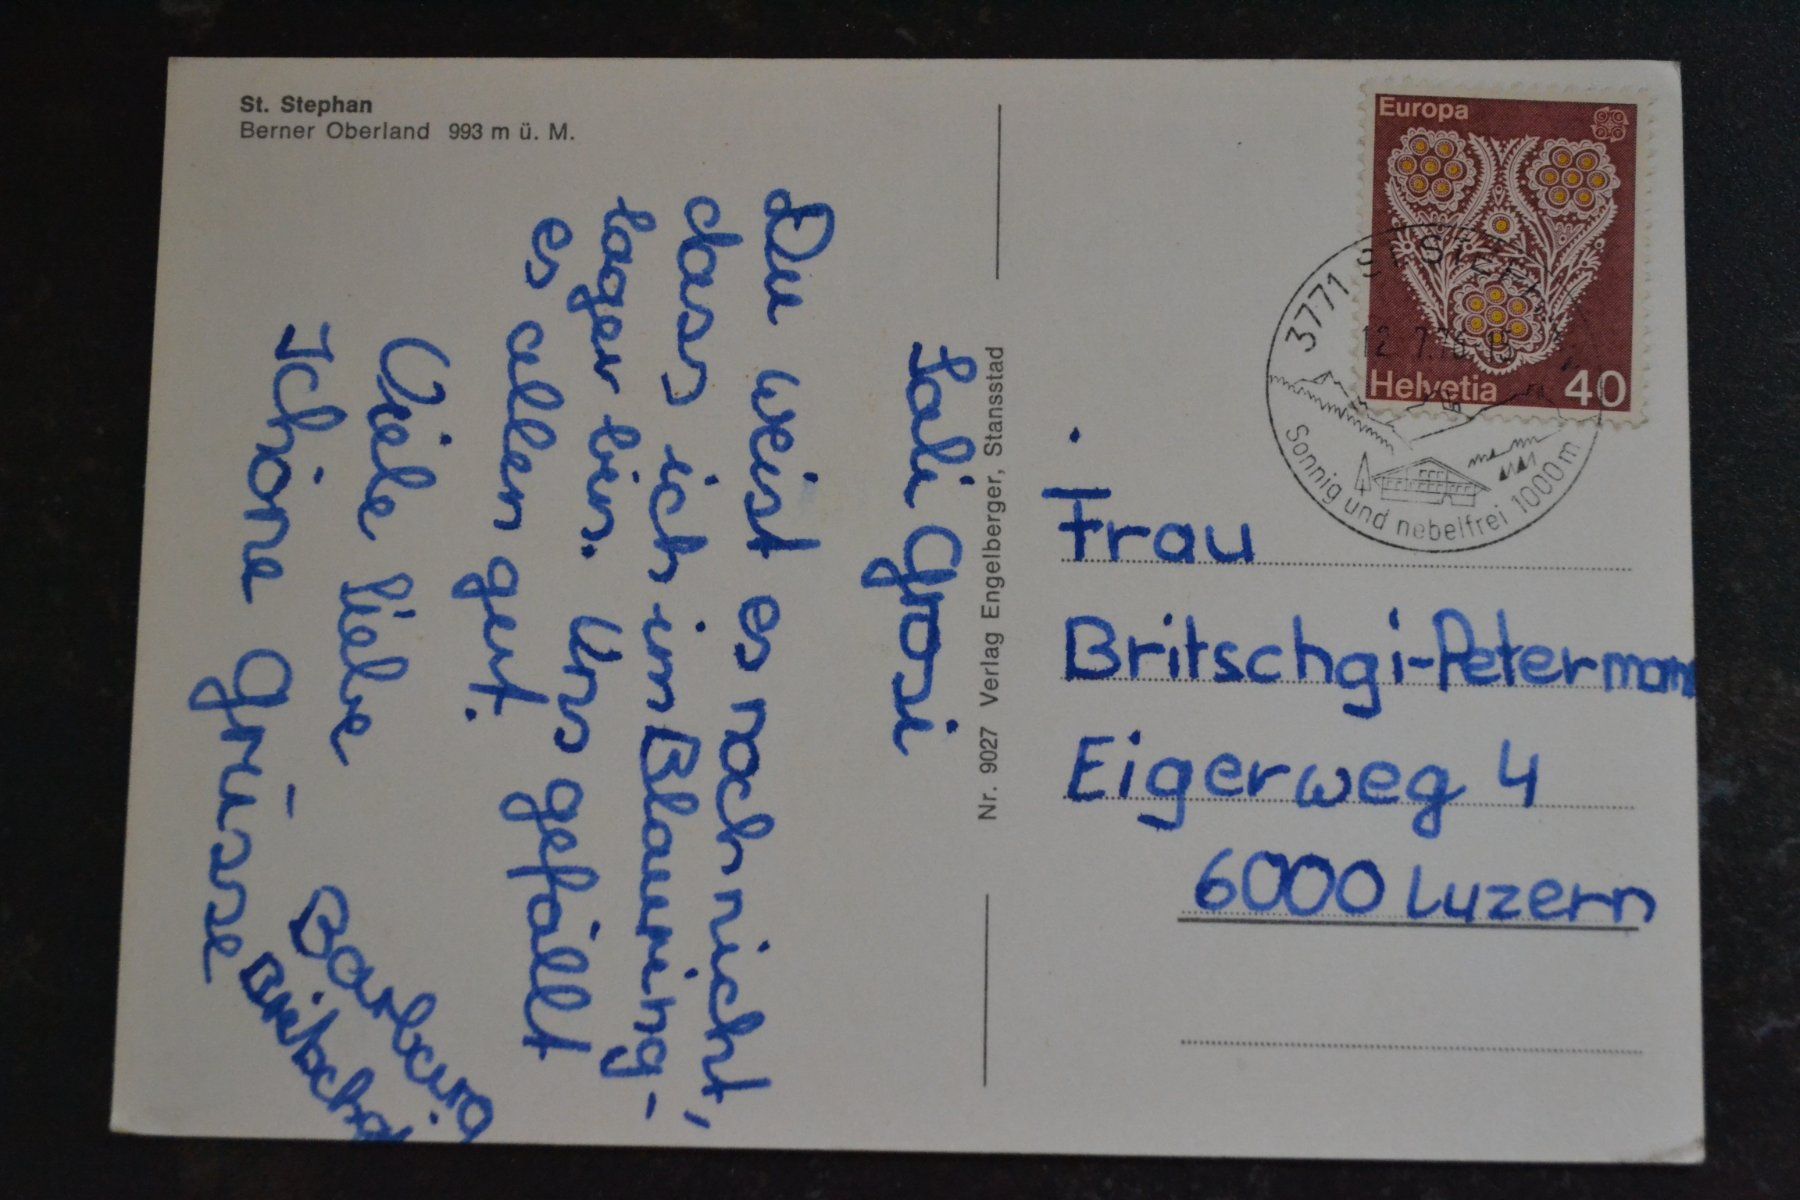 St. Stephan
Berner Oberland 993 m ü. M.
Sali Grosi
Du weist es noch nicht,
dass ich im Blauring-
lager bin. Uns gefällt
es allen gut.
Viele liebe
schöne grüsse
Barbara
Britschgi
Nr. 9027 Verlag Engelberger, Stansstad
Europa
Helvetia 40
3771 ST. STEPHAN
12.7.76-15
Sonnig und nebelfrei 1000 m
Frau
Britschgi-Petermann
Eigerweg 4
6000 Luzern